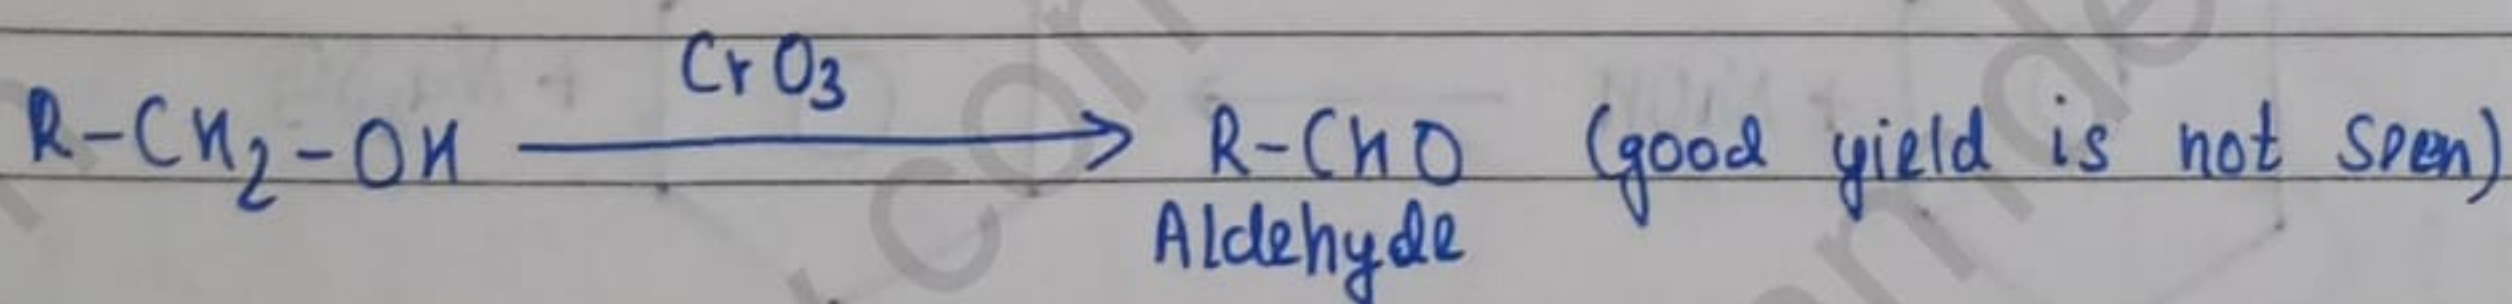 R-CH₂-OH —CrO₃→ R-CHO (good yield is not seen)
Aldehyde